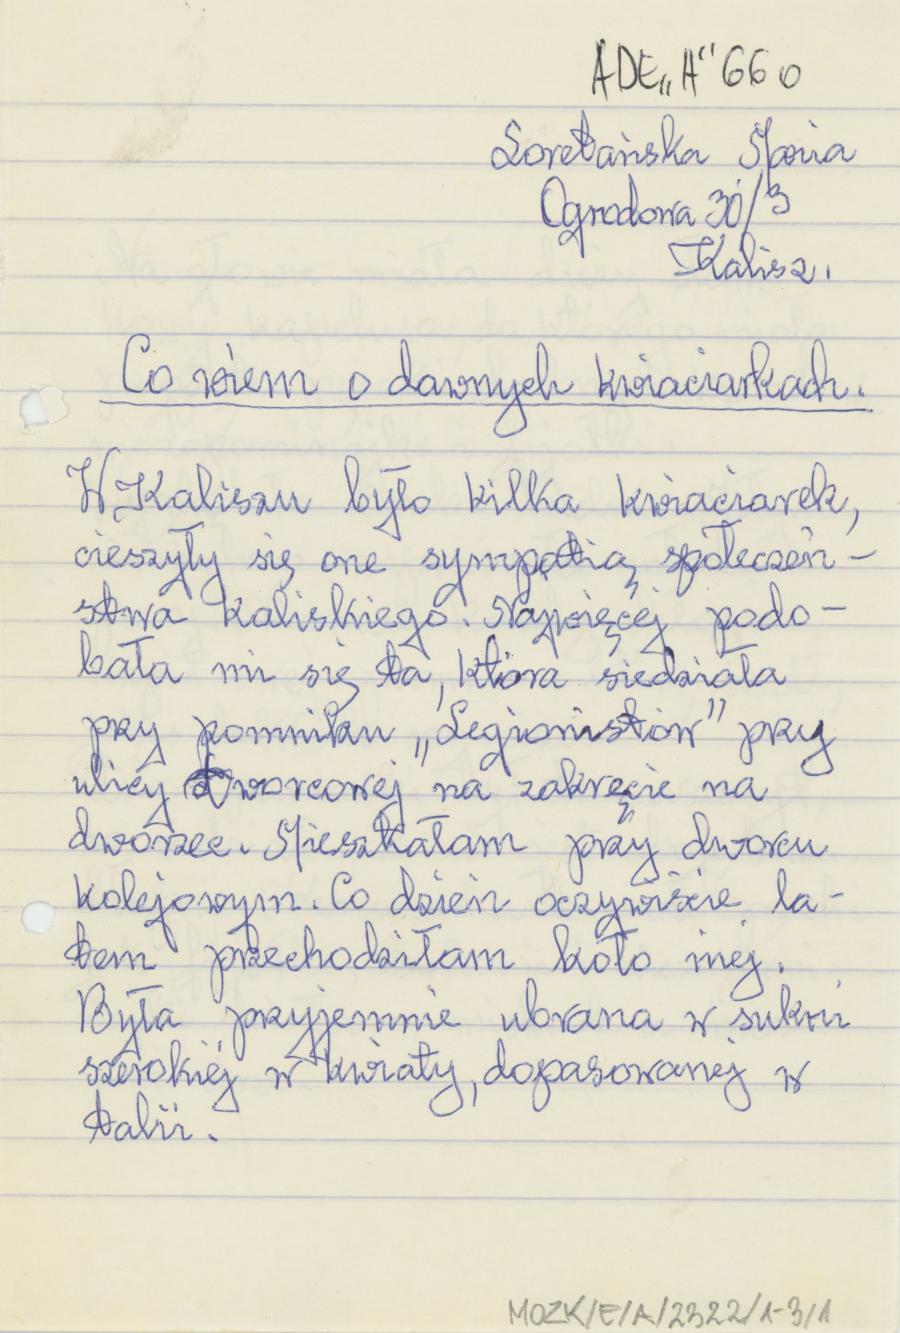 ADE„A" 660
Loretańska Maria
Ogrodowa 30/3
Kalisz.
Co wiem o dawnych kwiaciarkach.
W Kaliszu było kilka kwiaciarek,
cieszyły się one sympatią społeczeń-
stwa kaliskiego. Najwięcej podo-
bała mi się ta, która siedziała
przy pomniku „Legionistów" przy
ulicy Dworcowej na zakręcie na
dworzec. Mieszkałam przy dworcu
kolejowym. Co dzień oczywiście la-
tem przechodziłam koło niej.
Była przyjemnie ubrana w sukni
szerokiej w kwiaty, dopasowanej w
talii.
MOZK/E/A/2322/1-3/1